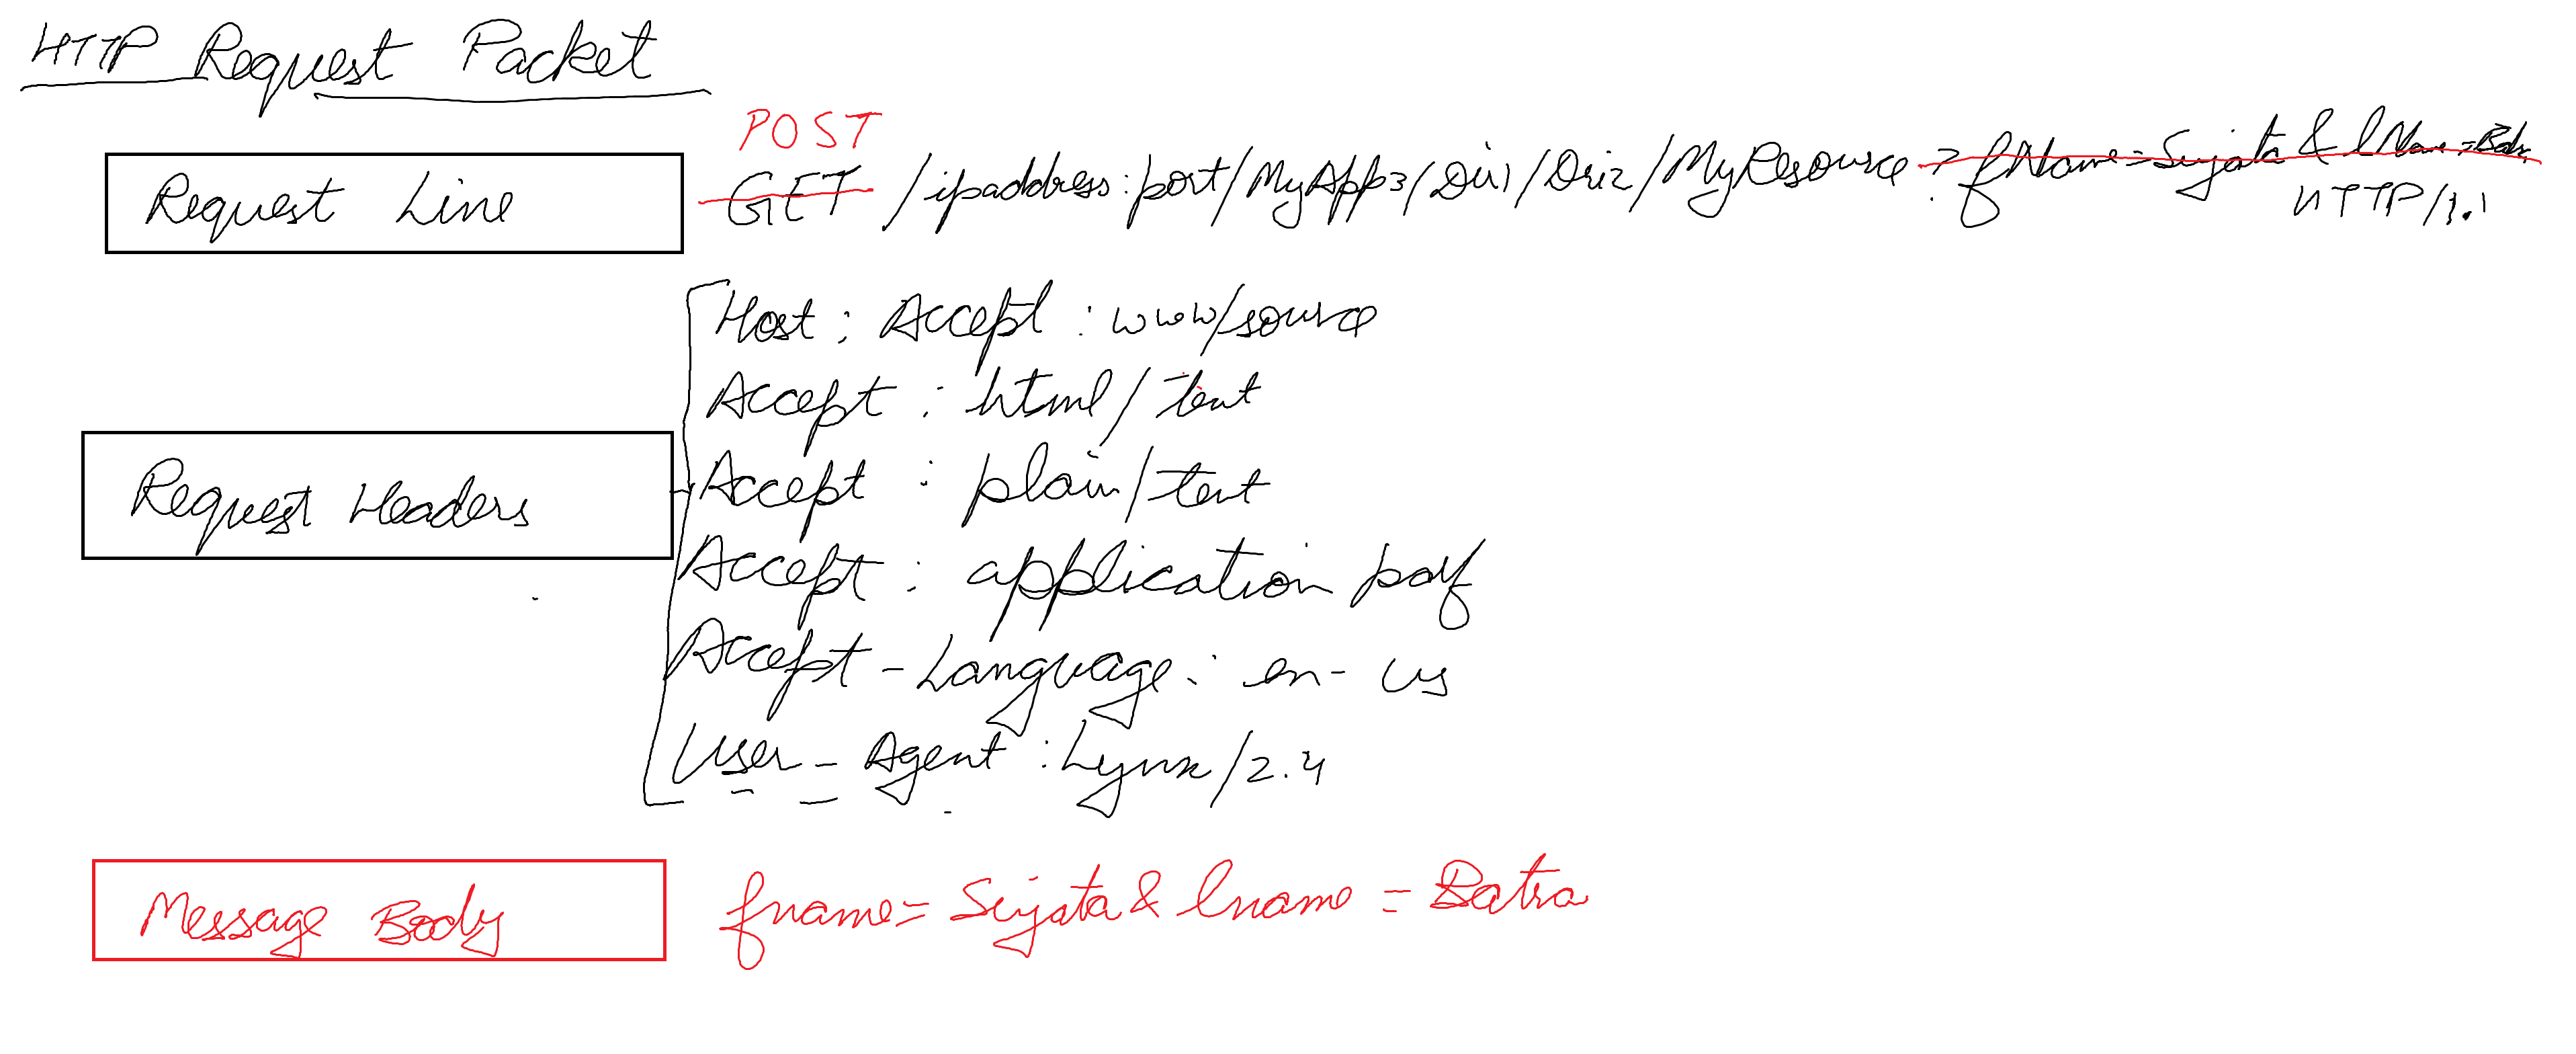 HTTP Request Packet
POST
Request Line GET /ipaddress:port/MyApp3/Dir1/Dri2/MyResource ? fName=Sujata & lName=Batra
HTTP/1.1
Host : Accept : www/source
Accept : html/text
Accept : plain/text
Request Headers
Accept : application pdf
Accept-Language : en-us
User-Agent : Lynx/2.4
Message Body fname=Sujata & lname = Batra